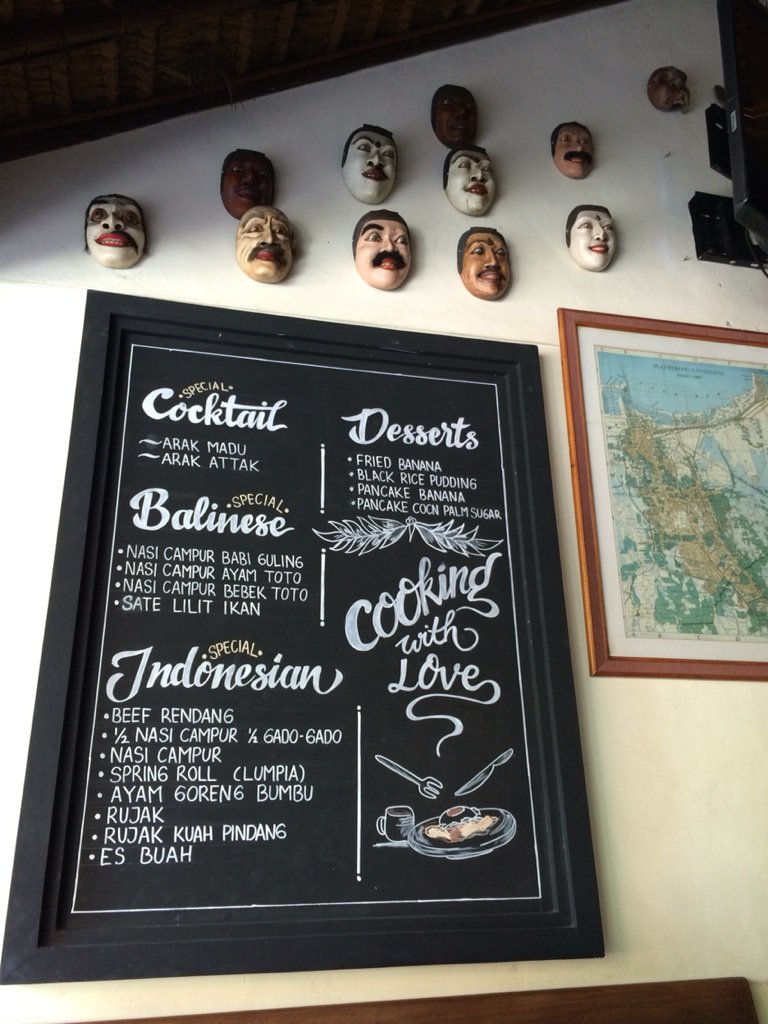 SPECIAL
Cocktail
ARAK MADU
ARAK ATTAK
SPECIAL
Balinese
NASI CAMPUR BABI GULING
NASI CAMPUR AYAM TOTO
NASI CAMPUR BEBEK TOTO
SATE LILIT IKAN
SPECIAL
Indonesian
BEEF RENDANG
½ NASI CAMPUR ½ GADO-GADO
NASI CAMPUR
SPRING ROLL (LUMPIA)
AYAM GORENG BUMBU
RUJAK
RUJAK KUAH PINDANG
ES BUAH
Desserts
FRIED BANANA
BLACK RICE PUDDING
PANCAKE BANANA
PANCAKE COCN PALM SUGAR
Cooking
with
Love